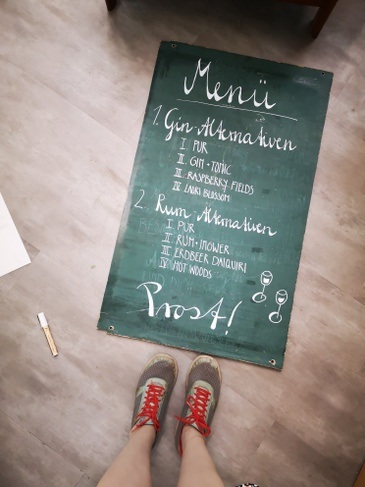 Menü
1. Gin-Alternativen
I. PUR
II. GIN + TONIC
III. RASPBERRY FIELDS
IV. LADRI BLOSSOM
2. Rum-Alternativen
I. PUR
II. RUM + INGWER
III. ERDBEER DAIQUIRI
IV. HOT WOODS
Prost!